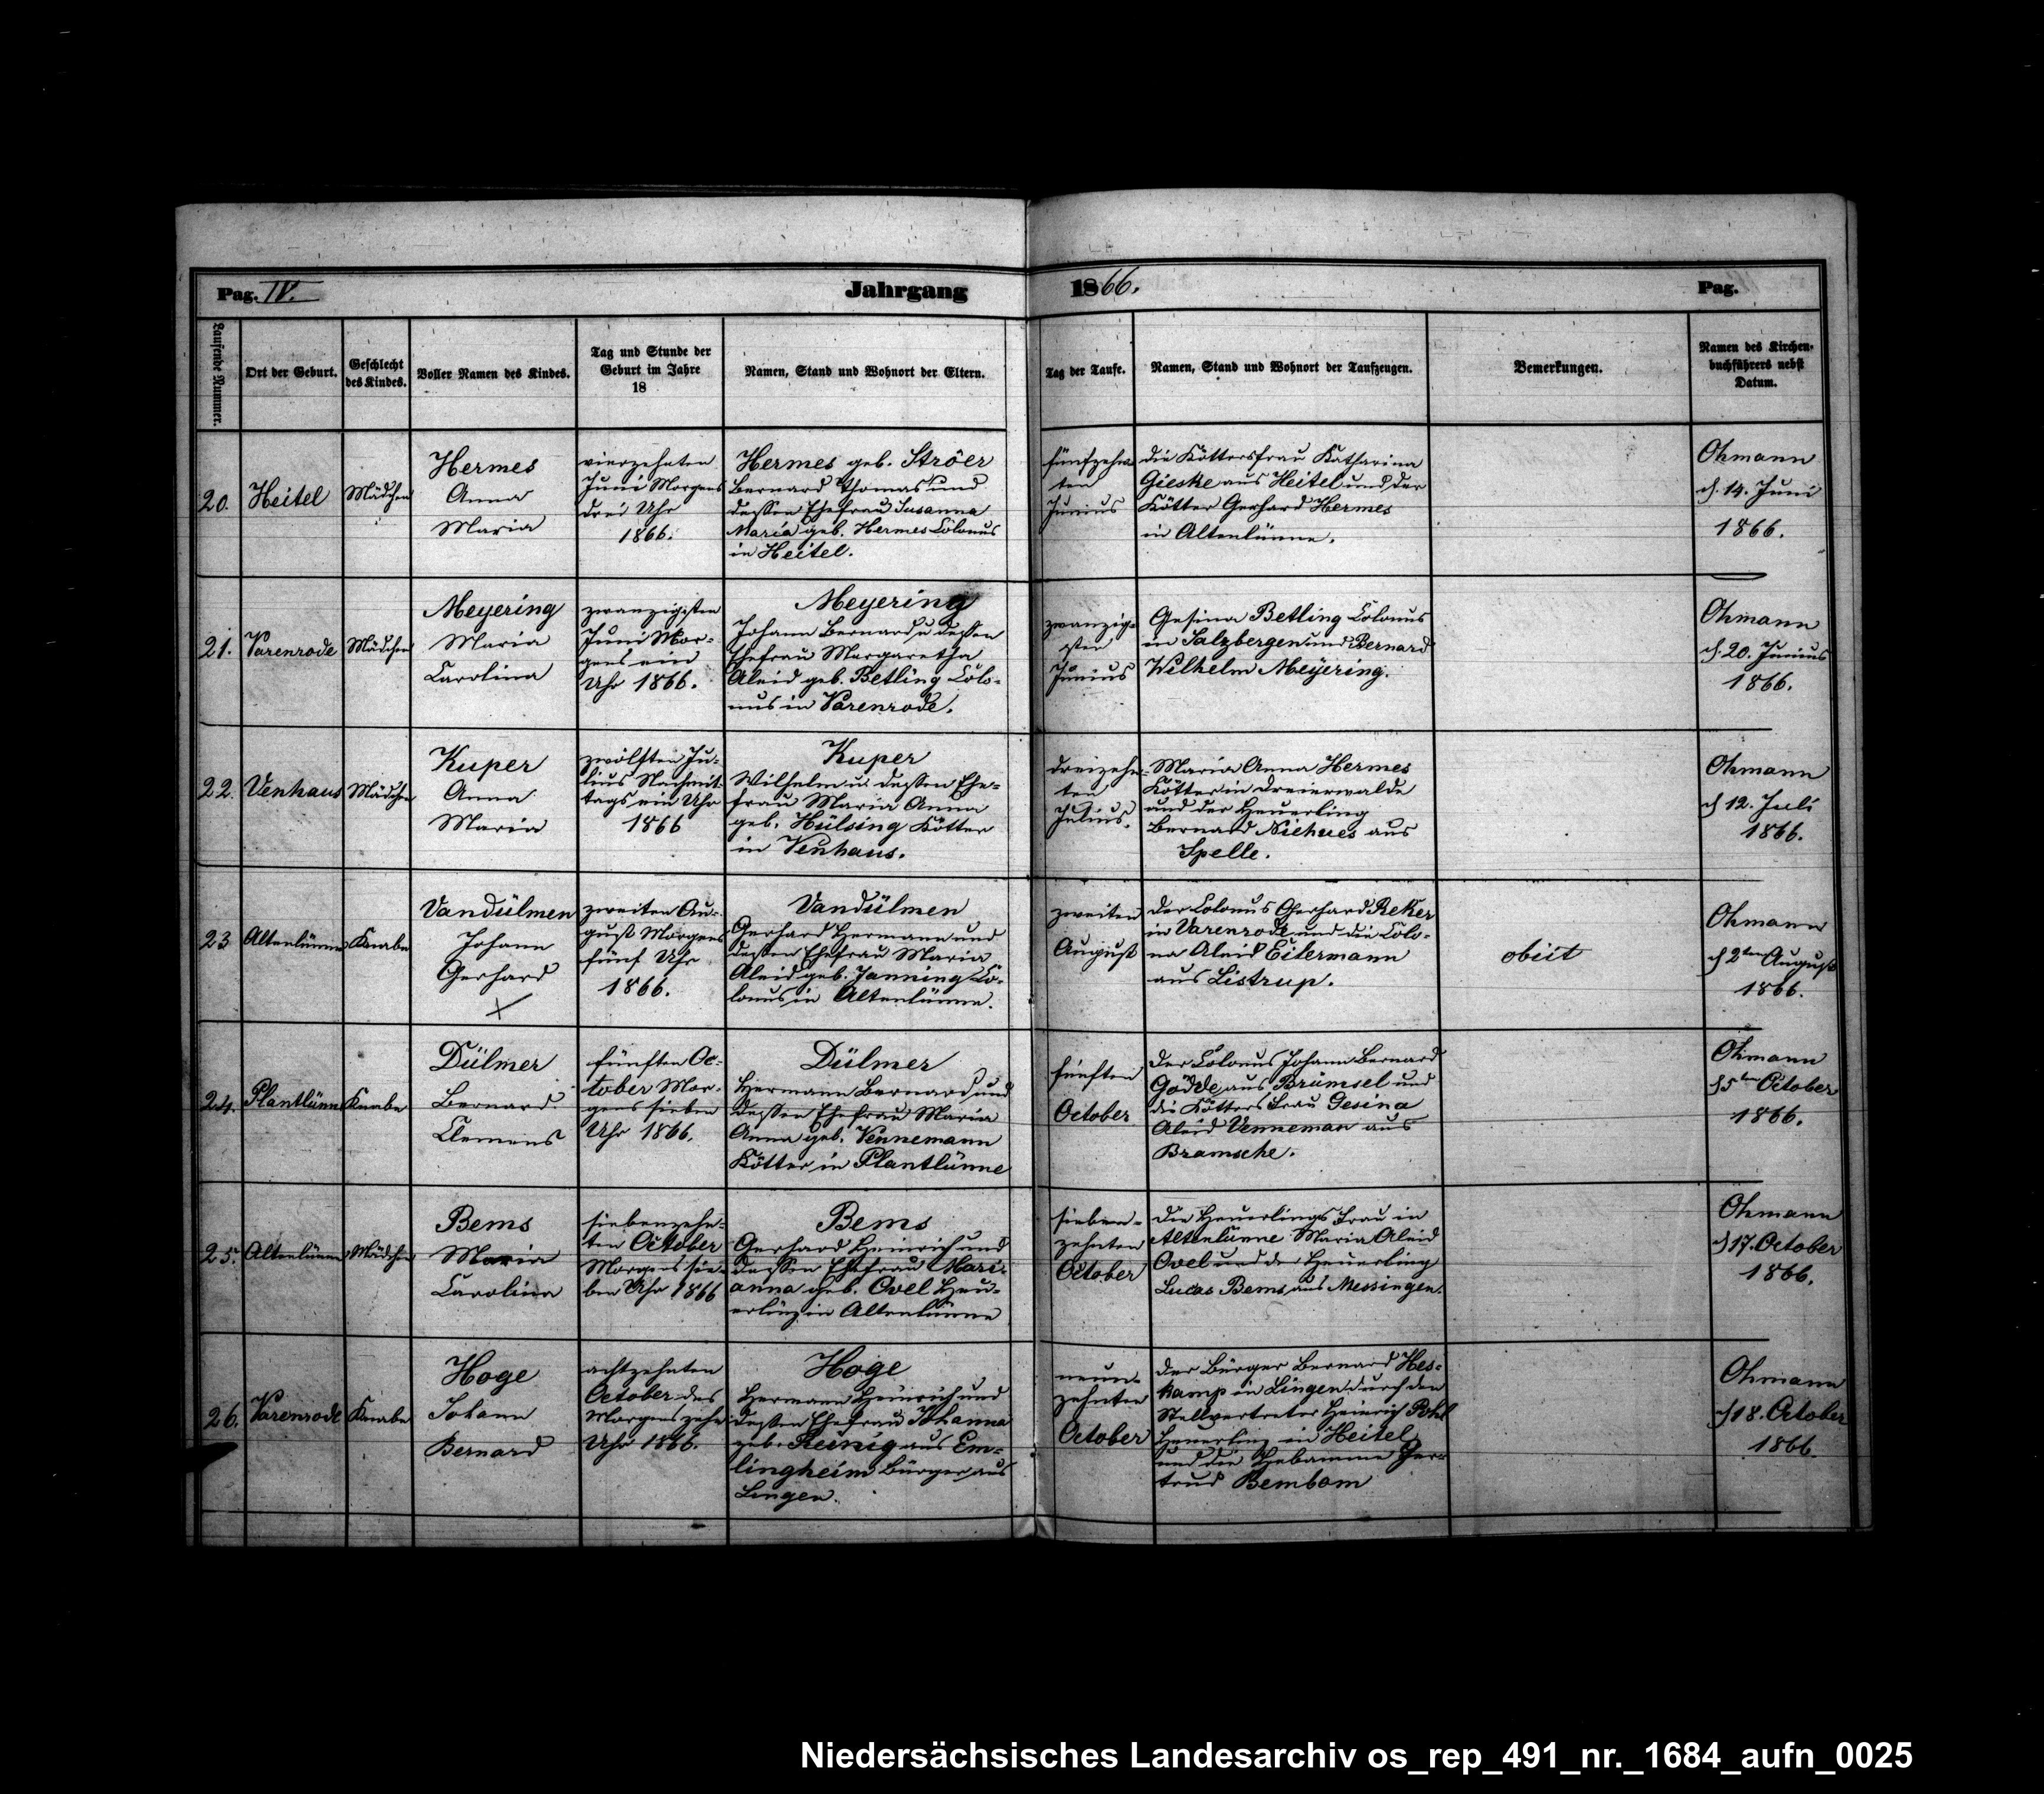 Pag. IV.
Jahrgang
1866.
Pag.
Laufende Nummer.
Ort der Geburt.
Geschlecht
des Kindes.
Voller Namen des Kindes.
Tag und Stunde der
Geburt im Jahre
18
Namen, Stand und Wohnort der Eltern.
Tag der Taufe.
Namen, Stand und Wohnort der Taufzeugen.
Bemerkungen.
Namen des Kirchen-
buchführers nebst
Datum.
20.
Heitel
Mädchen
Hermes
Anna
Maria
vierzehnten
Juni Morgens
drei Uhr
1866.
Hermes geb. Ströer
Bernard Thomas und
dessen Ehefrau Susanna
Maria geb. Hermes Colonus
in Heitel.
fünfzehn-
ten
Junius
die Köttersfrau Katharina
Gieske aus Heitel und der
Kötter Gerhard Hermes
in Altenlünne.
Ohmann
14. Juni
1866.
21.
Varenrode
Mädchen
Meyering
Maria
Carolina
zwanzigsten
Juni Mor-
gens ein
Uhr 1866.
Meyering
Johann Bernard u dessen
Ehefrau Margaretha
Aleid geb. Betling Colo-
nus in Varenrode.
zwanzig-
sten
Junius
Gesina Betling Colonus
in Salzbergen und Bernard
Wilhelm Meyering.
Ohmann
20. Junius
1866.
22.
Venhaus
Mädchen
Kuper
Anna
Maria
zwölften Ju-
lius Nachmit-
tags ein Uhr
1866
Kuper
Wilhelm u. dessen Ehe-
frau Maria Anna
geb. Hülsing Kötter
in Venhaus.
dreizehn-
ten
Julius.
Maria Anna Hermes
Kötter in Dreierwalde
und der Heuerling
Bernard Niehues aus
Spelle.
Ohmann
12. Juli
1866.
23
Altenlünne
Knabe
Vandülmen
Johann
Gerhard
zweiten Au-
gust Morgens
fünf Uhr
1866.
Vandülmen
Gerhard Hermann und
dessen Ehefrau Maria
Aleid geb. Janning Co-
lonus in Altenlünne.
zweiten
August
der Colonus Gerhard Reker
in Varenrode und die Colo-
na Aleid Eilermann
aus Listrup.
obiit
Ohmann
2ten August
1866.
24.
Plantlünne
Knabe
Dülmer
Bernard
Clemens
fünften Oc-
tober Mor-
gens sieben
Uhr 1866.
Dülmer
Hermann Bernard und
dessen Ehefrau Maria
Anna geb. Vennemann
Kötter in Plantlünne
fünften
October
der Colonus Johann Bernard
Gödde aus Brümsel und
die Kötters Frau Gesina
Aleid Venneman aus
Bramsche.
Ohmann
5ten October
1866.
25.
Altenlünne
Mädchen
Bems
Maria
Carolina
siebenzehn-
ten October
Morgens sie-
ben Uhr 1866
Bems
Gerhard Heinrich und
dessen Ehefrau Mari-
anna geb. Ovel Heu-
erling in Altenlünne
sieben-
zehnten
October
die Heuerlings Frau in
Altenlünne Maria Aleid
Ovel und der Heuerling
Lucas Bems aus Messingen.
Ohmann
17. October
1866.
26.
Varenrode
Knabe
Hoge
Johann
Bernard
achtzehnten
October des
Morgens zehn
Uhr 1866.
Hoge
Hermann Heinrich und
dessen Ehefrau Johanna
geb. Reinig aus Em-
lingheim Bürger aus
Lingen.
neun-
zehnten
October
der Bürger Bernard Hes-
kamp in Lingen durch den
Stellvertreter Heinrich Pohl
Heuerling in Heitel
und die Hebamme Ger-
trud Bembom
Ohmann
18. October
1866.
Niedersächsisches Landesarchiv os_rep_491_nr._1684_aufn_0025